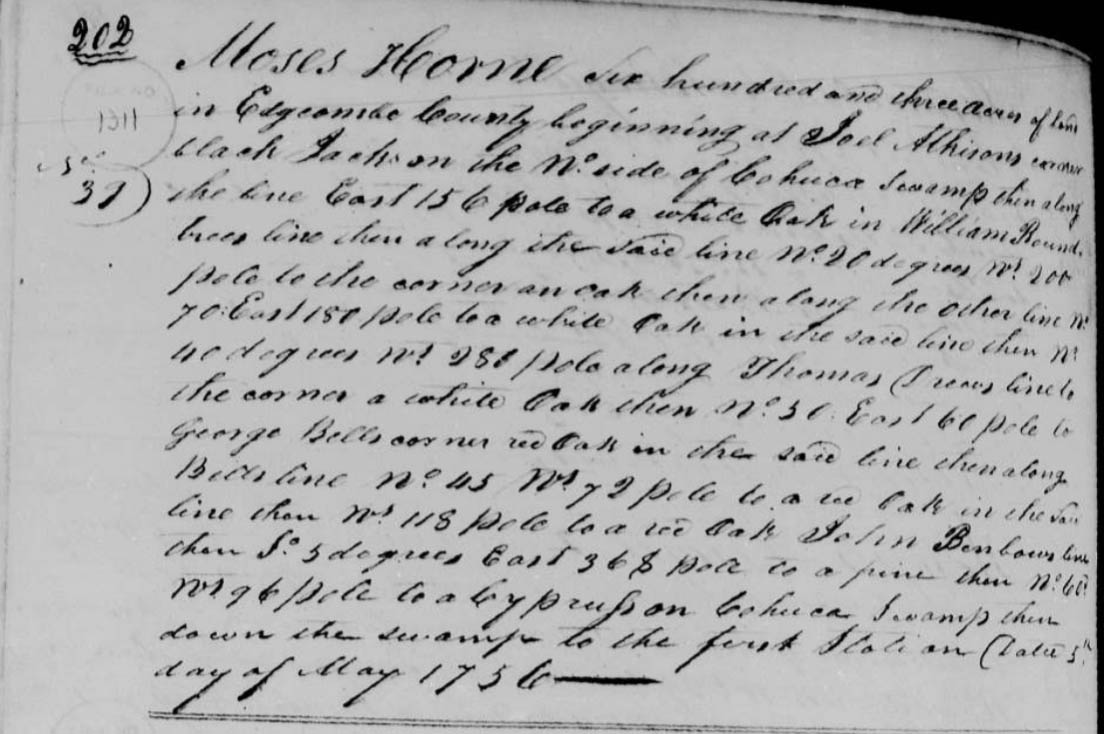 202
Moses Horne Six hundred and three acres of land
1311
in Edgcombe County beginning at Joel Atkisons corner
black Jack on the No. side of Cohuca Swamp then along
39)
the line East 156 pole to a white Oak in William Round
trees line then along the said line No. 20 degrees Wt. 200
pole to the corner an oak then along the other line No.
70: East 180 pole to a white Oak in the said line then No.
40 degrees Wt. 288 pole along Thomas line to
the corner a white Oak then No. 50: East 60 pole to
George Bells corner red Oak in the said line then along
Bells line No. 45 Wt. 72 pole to a red Oak in the said
line then Wt. 118 pole to a red Oak John Benbows line
then So. 5 degrees East 368 pole to a pine then No. 60.
Wt 96 pole to a Cypruss on Cohuca Swamp then
down the swamp to the first Station (Dated 5th.
day of May 1756